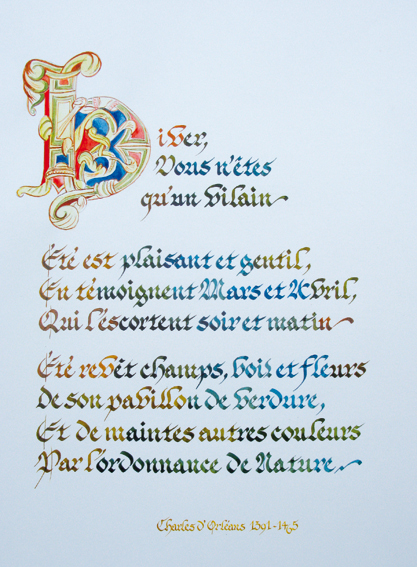 Hiver,
Vous n'êtes
qu'un vilain
Été est plaisant et gentil,
En témoignent Mars et Avril,
Qui l'escortent soir et matin
Été revêt champs, bois et fleurs
de son pavillon de verdure,
Et de maintes autres couleurs
Par l'ordonnance de Nature
Charles d'Orléans 1391-1465